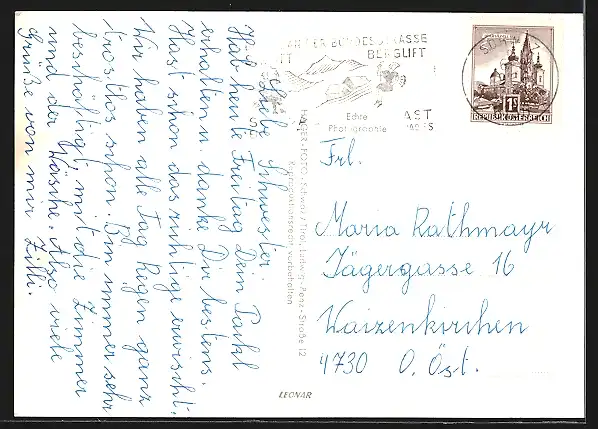 Liebe Schwester
Hab heute Freitag Dein Packl
erhalten u. danke Dir bestens.
Hast schon das richtige erwischt.
Wir haben alle Tag Regen ganz
trostlos schon. Bin immer sehr
beschäftigt, mit die Zimmer
und der Wäsche. Also viele
Grüße von mir Zilli.
AN DER BUNDESSTRASSE
BERGLIFT
AST
REPUBLIK ÖSTERREICH
1S
Echte
Photographie
HAGER-FOTO, Schwaz/Tirol, Ludwig-Penz-Straße 12
Reproduktionsrecht vorbehalten
Frl.
Maria Rathmayr
Jägergasse 16
Waizenkirchen
4730 O. Öst.
LEONAR